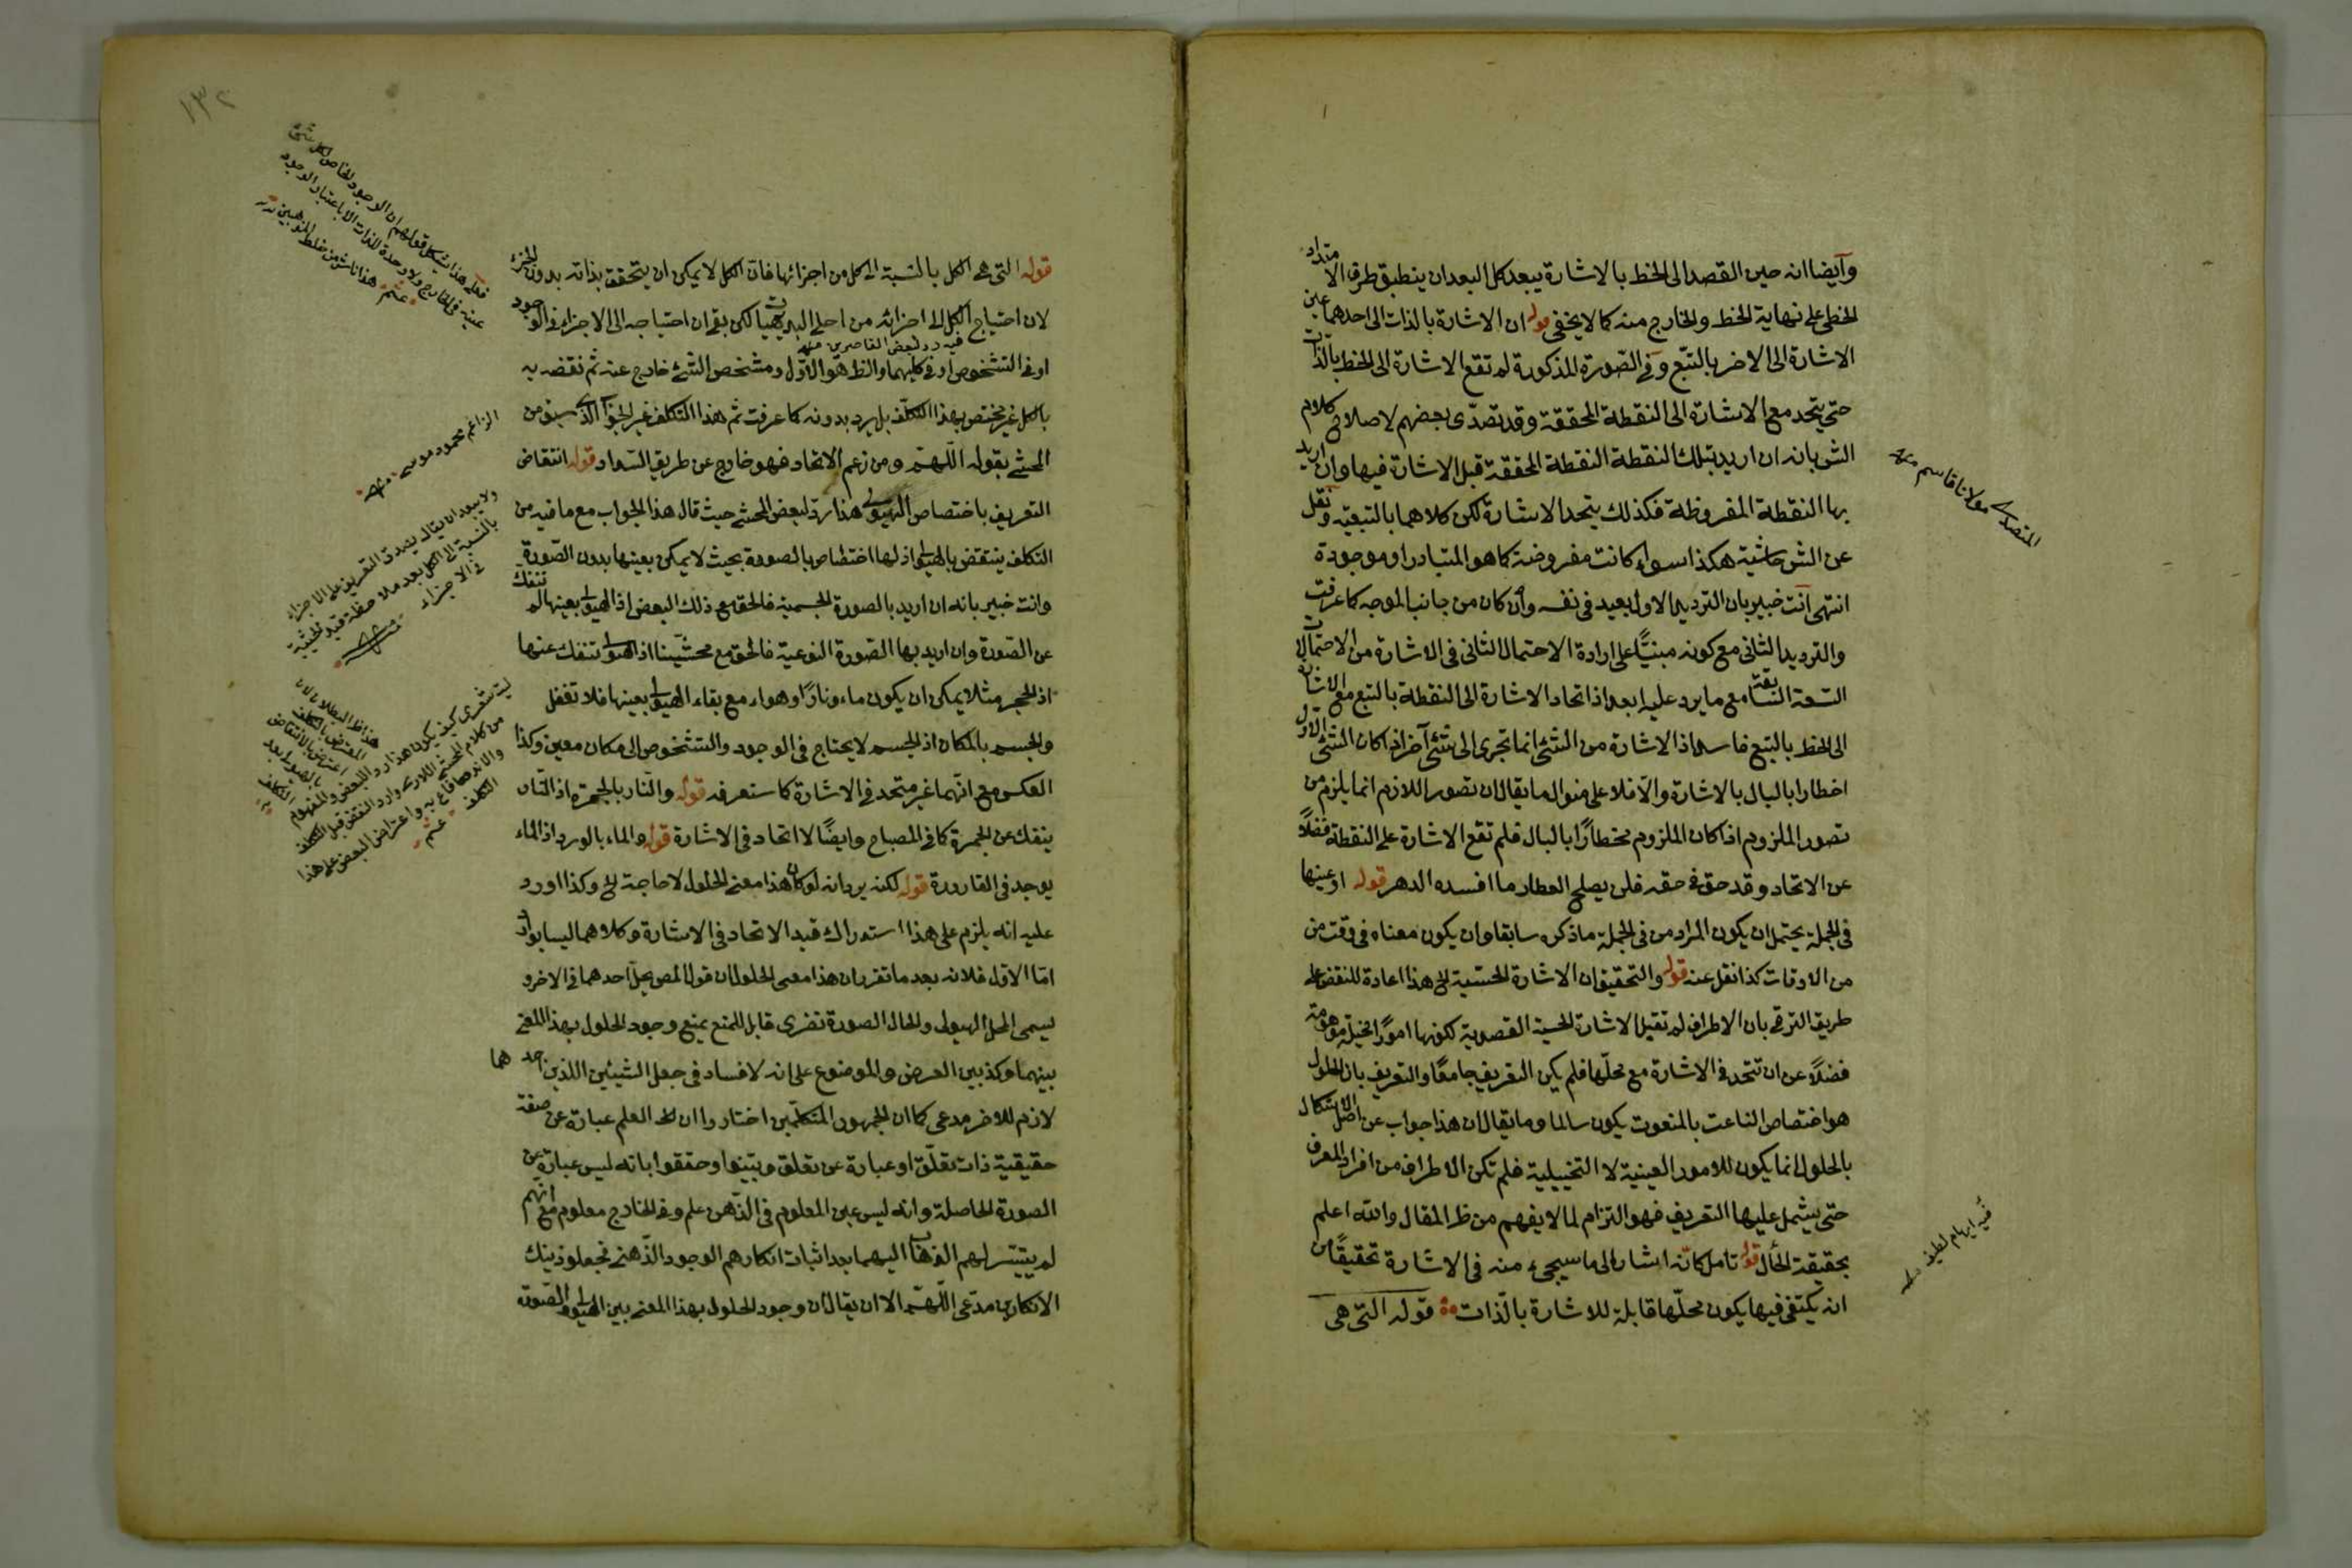 وأيضا انه حين القصد الى الخط بالاشارة يبعد كل البعد ان ينطبق طرف الامتداد
الخطى على نهاية الخط والخارج منه كما لا يخفى قوله ان الاشارة بالذات الى احدهما عين
الاشارة الى الاخر بالتبع وفي الصورة المذكورة لم تقع الاشارة الى الخط بالذات
حتى يتحد مع الاشارة الى النقطة المحققة وقد تصدى بعضهم لاصلاح كلام
الش بانه ان اريد بتلك النقطة النقطة المحققة قبل الاشارة فيها وان اريد
بها النقطة المفروضة فكذلك يتحد الاشارة لكن كلاهما بالتبعية ونقل
عن الش حاشية هكذا سواء كانت مفروضة كما هو المتبادر او موجودة
انتهى انت خبير بان الترديد الاول بعيد في نفسه وان كان من جانب الموجه كما عرفت
والترديد الثانى مع كونه مبنيًّا على ارادة الاحتمال الثانى في الاشارة من الاحتمالات
مع ما يرد عليه ابعد اذ اتحاد الاشارة الى النقطة بالتبع مع الاشارة
الى الخط بالتبع فاسد اذ الاشارة من الشئ انما تجرى الى شئ آخر اذا كان الشئ الاول
اخطارا بالبال بالاشارة والا فلا على منوال ما يقال ان تصور اللازم انما يلزم من
تصور الملزوم اذا كان الملزوم مخطارًا بالبال فلم تقع الاشارة على النقطة فضلًا
عن الاتحاد وقد حق في حقه فلن يصلح العطار ما افسده الدهر قوله او عينها
في الجملة يحتمل ان يكون المراد من في الجملة ما ذكره سابقا وان يكون معناه في وقت من
من الاوقات كذا نقل عنه قوله والتحقيق ان الاشارة الحسية الخ هذا اعادة للنقض على
طريق الترقى بان الاطراف لم تقبل الاشارة الحسية القصدية لكونها امورًا تخيلة موهومة
فضلًا عن ان تتحد في الاشارة مع محلها فلم يكن التعريف جامعًا والتعريف بان الحلول
هو اختصاص الناعت بالمنعوت يكون سالما وما يقال ان هذا جواب عن اصل الاشكال
بالحلول انما يكون للامور العينية لا التخييلية فلم تكن الاطراف من افراد المعرف
حتى يشمل عليها التعريف فهو التزام لما لا يفهم من ظ المقال والله اعلم
بحقيقة الحال قوله تامل كانه اشار الى ما سيجىء منه في الاشارة تحقيقًا من
انه يكتفى فيها بكون محلها قابلة للاشارة بالذات قوله التى هى
المتصدى مولانا قاسم منه
فيه ايهام لطيف منه
١٣٢
قوله التى هى الكل بالنسبة الى كل من اجزائها فان الكل لا يمكن ان يتحقق بذاته بدون الجزء
لان احتياج الكل الى اجزائه من اجلى البديهيات لكن بقى ان احتياجه الى الاجزاء في الوجود
فيه رد لبعض القاصرين منه
او في التشخص او في كليهما والظ هو الاول ومشخص الشئ خارج عنه ثم نقضه به
بالكل غير مختص بهذا التكلف بل يرد بدونه كما عرفت ثم هذا التكلف غير الجواب الذى سبق من
المحشى بقوله اللهم ومن زعم الاتحاد فهو خارج عن طريق السداد قوله انتقاض
التعريف باختصاص الهيولى هذا رد لبعض المحشى حيث قال هذا الجواب مع ما فيه من
التكلف ينتقض بالهيولى اذ لها اختصاص بالصورة بحيث لا يمكن بعينها بدون الصورة
وانت خبير بانه ان اريد بالصورة الجسمية فالحق مع ذلك البعض اذ الهيولى بعينها لم تنفك
عن الصورة وان اريد بها الصورة النوعية فالحق مع محشينا اذ الهيولى تنفك عنها
اذ الحجر مثلا يمكن ان يكون ماء ونارًا وهواء مع بقاء الهيولى بعينها فلا تغفل
والجسم بالمكان اذ الجسم لا يحتاج في الوجود والتشخص الى مكان معين وكذا
العكس مع انهما غير متحد في الاشارة كما ستعرفه قوله والنار بالجمرة اذ النار
ينفك عن الجمرة كما في المصباح وايضًا لا اتحاد في الاشارة قوله والماء بالورد اذ الماء
يوجد في القارورة قوله لكنه يرد انه لو كان هذا معنى الحلول لا حاجة الخ وكذا اورد
عليه انه يلزم على هذا استدراك قيد الاتحاد في الاشارة وكلاهما ليسا بوارد
اما الاول فلانه بعد ما تقرر ان هذا معنى الحلول ان قول المص يحل احدهما في الاخر و
يسمى المحل الهيولى والحال الصورة تفرى قابل للمنع بمنع وجود الحلول بهذا المعنى
بينهما وكذ بين العرض والموضوع على انه لا فساد في جعل الشيئين اللذين احدهما
لازم للاخر مدعى كما ان الجمهور المتكلمين اختاروا ان العلم عبارة عن صفة
حقيقية ذات تعلق او عبارة عن تعلق وبينوا وحققوا بانه ليس عبارة عن
الصورة الحاصلة وانه ليس عين المعلوم في الذهن علم وفي الخارج معلوم مع انهم
لم يتيسر لهم الذهاب اليهما بعد اثبات انكارهم الوجود الذهنى فجعلوا ذينك
الانكارين مدعى اللهم الا ان يقال ان وجود الحلول بهذا المعنى بين الهيولى والصورة
فعلى هذا يشكل قولهم ان الوجود الخاص لكل شئ
عينه في الخارج ولا وحدة للذات الا باعتبار الوجود
هذا ناش من خلط المذهبين
الزاعم محمود موسى منه
ولا يبعد ان يقال يصدق التعريف على الاجزاء
بالنسبة الى الكل بعد ملاحظة قيد الحيثية
في الاجزاء
ليت شعرى كيف يكون هذا رد البعض والمفهوم
من كلام المحشى وارد النقض قبل التكلف
واعتراض البعض على هذا
التكلف